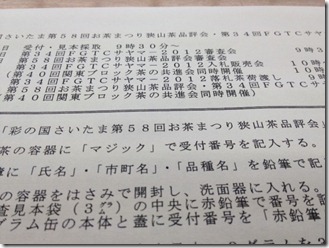 国さいたま第58回お茶まつり狭山茶品評会・第34回FGTC
日 受付・見本採取 9時30分〜
第34回FGTCサヤマー2012審査会
第58回お茶まつり狭山茶品評会審査会
第34回FGTCサヤマー2012入札販売会 10時
(第40回関東ブロック茶の共進会同時開催)
第34回FGTCサヤマー2012落札茶荷渡し 9時
第58回お茶まつり狭山茶品評会・第34回F
(第40回関東ブロック茶の共進会同時開催)
「彩の国さいたま第58回お茶まつり狭山茶品評会」
茶の容器に「マジック」で受付番号を記入する。
に「氏名」・「市町名」・「品種名」を鉛筆で記
の容器をはさみで開封し、洗面器に入れる。
査見本袋(3㌘)の中央に赤鉛筆で番号を記
グラム缶の本体と蓋に受付番号を「赤鉛筆